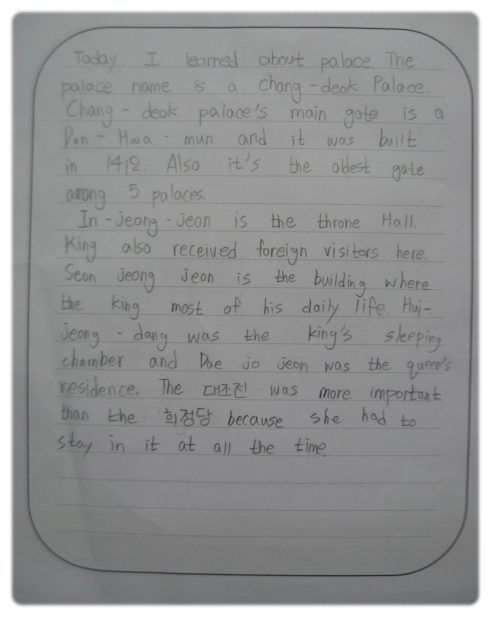 Today. I learned about palace. The
palace name is a Chang-deok Palace.
Chang-deok palace's main gate is a
Don-Hwa-mun and it was built
in 1412. Also it's the oldest gate
among 5 palaces.
In-jeong-jeon is the throne Hall.
King also received foreign visitors here.
Seon jeong jeon is the building where
the king most of his daily life. Hui-
jeong-dang was the king's sleeping
chamber and Dae jo jeon was the queen's
residence. The 대조전 was more important
than the 희정당 because she had to
stay in it at all the time.